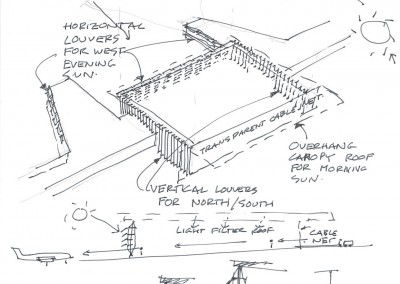 HORIZONTAL
LOUVERS
FOR WEST
EVENING
SUN.
TRANSPARENT CABLE NET
OVERHANG
CANOPY ROOF
FOR MORNING
SUN.
VERTICAL LOUVERS
FOR NORTH/SOUTH
LIGHT FILTER ROOF
CABLE
NET